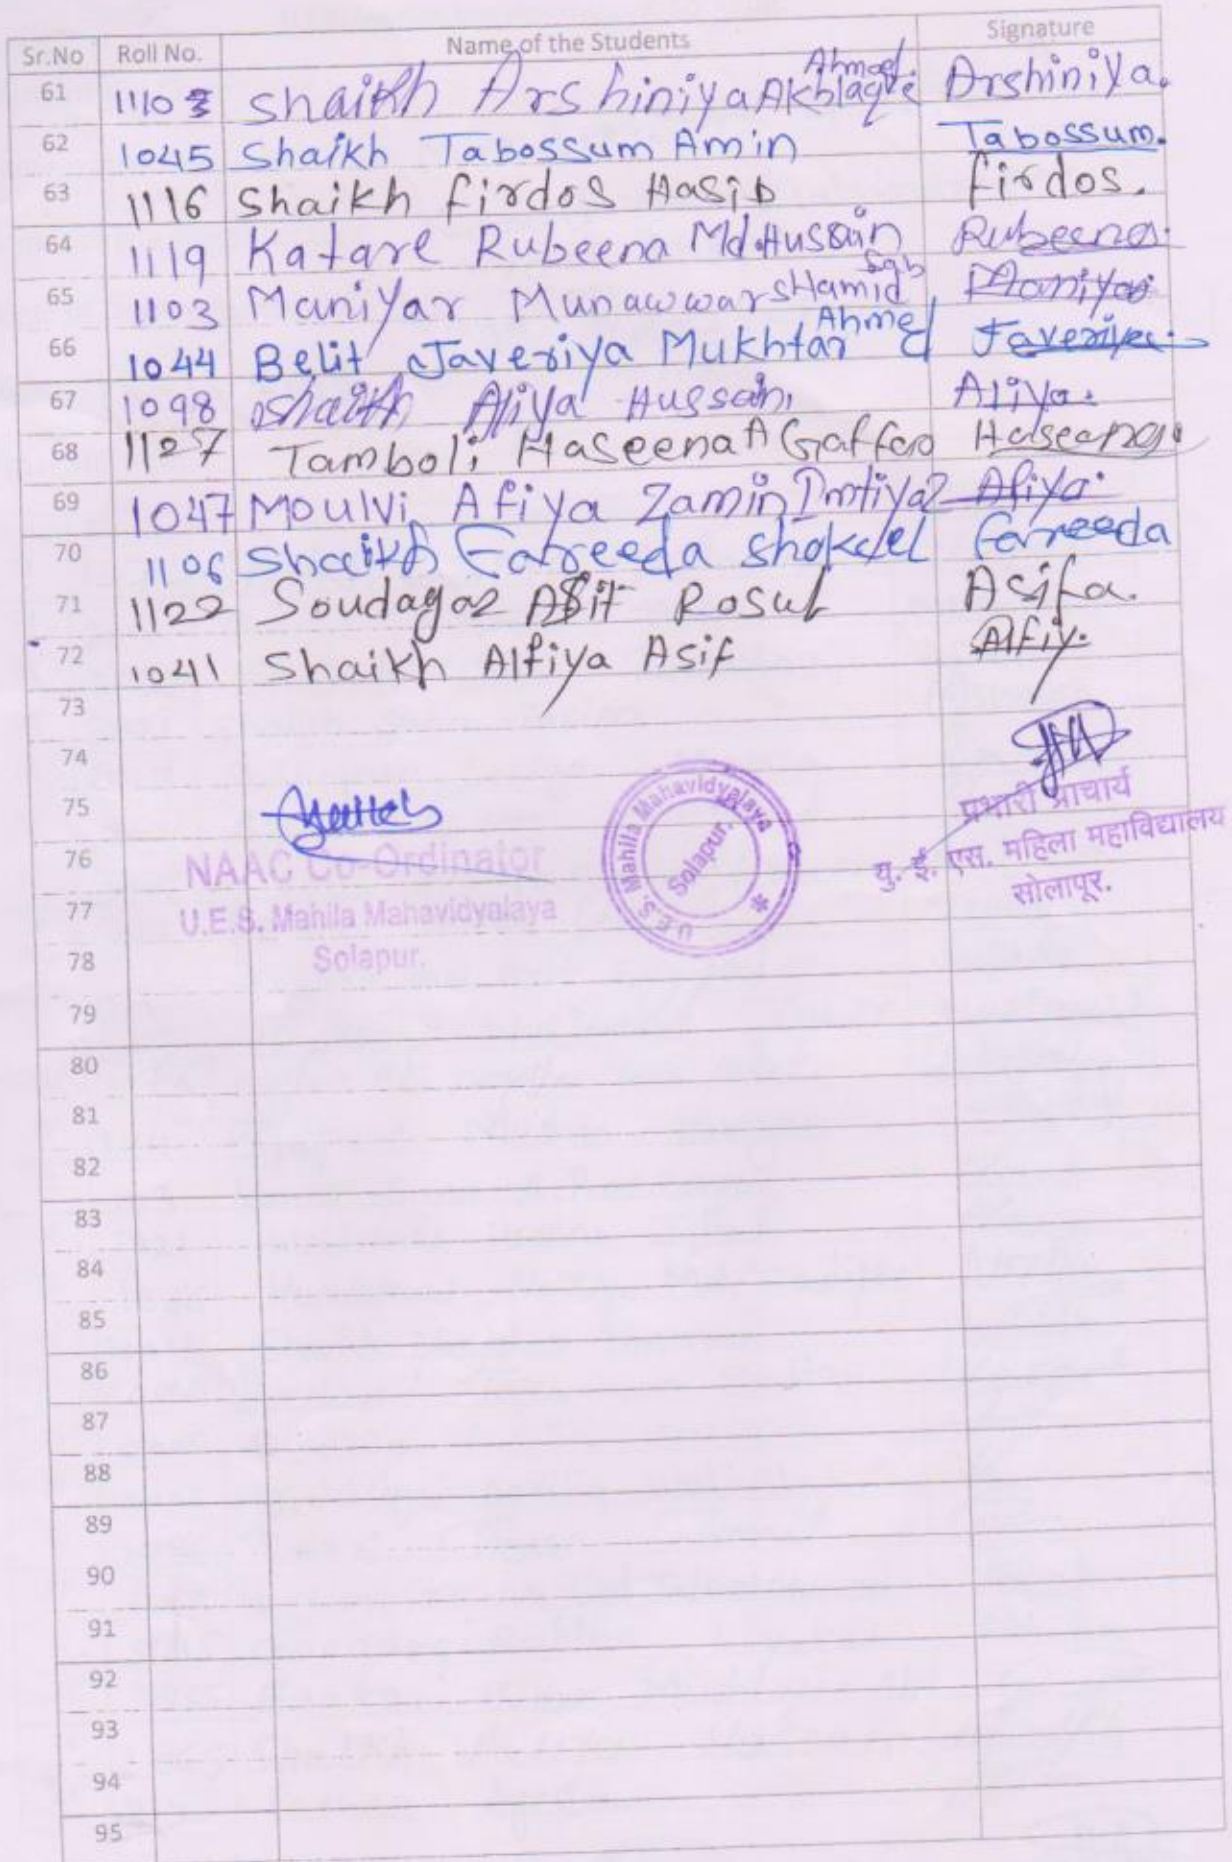 Sr.No Roll No. Name of the Students Signature
61 1103 Shaikh Arshiniya Akhlaque Ahmed Arshiniya.
62 1045 Shaikh Tabossum Amin Tabossum.
63 1116 Shaikh firdos Hasib firdos.
64 1119 Katare Rubeena Md.Hussain Rubeena
65 1103 Maniyar Munawwar Hamid Maniyar
66 1044 Belit Javeriya Mukhtar Ahmed Javeriya
67 1098 Shaikh Aliya Hussain Aliya.
68 1127 Tamboli Haseena A Gaffar Haseena.
69 1047 Moulvi Afiya Zamin Imtiyaz Afiya.
70 1106 Shaikh Fareeda Fareeda
71 1122 Soudagar Asif Rosul Asifa.
72 1041 Shaikh Alfiya Asif Alfiy.
73
74
75
76
77
78
79
80
81
82
83
84
85
86
87
88
89
90
91
92
93
94
95
NAAC Co-Ordinator
U.E.S. Mahila Mahavidyalaya
Solapur.
U.E.S. Mahila Mahavidyalaya
Solapur.
प्रभारी प्राचार्य
यु. ई. एस. महिला महाविद्यालय
सोलापूर.